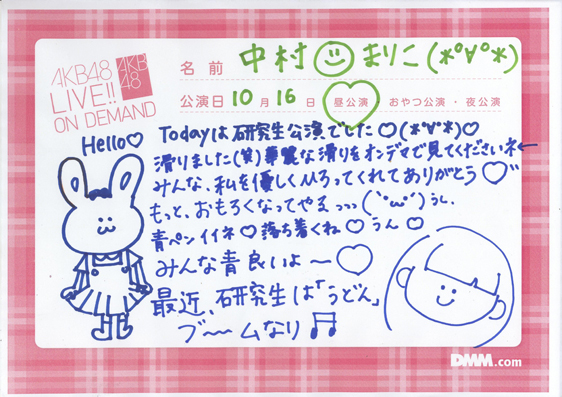 AKB48
LIVE!!
ON DEMAND
AKB
48
名前 中村 まりこ(*°∀°*)
公演日 10月16日 昼公演 おやつ公演・夜公演
Hello♡
Todayは研究生公演でした♡(*°∀°*)♡
滑りました(笑)華麗な滑りをオンデマで見てくださいネ←
みんな、私を優しくひろってくれてありがとう♡
もっと、おもろくなってやるっっっ(`°ω°´)うし.
青ペンイイネ♡落ち着くね♡うん♡
みんな青良いよ〜♡
最近、研究生は「うどん」
ブ〜〜ムなり♫
DMM.com